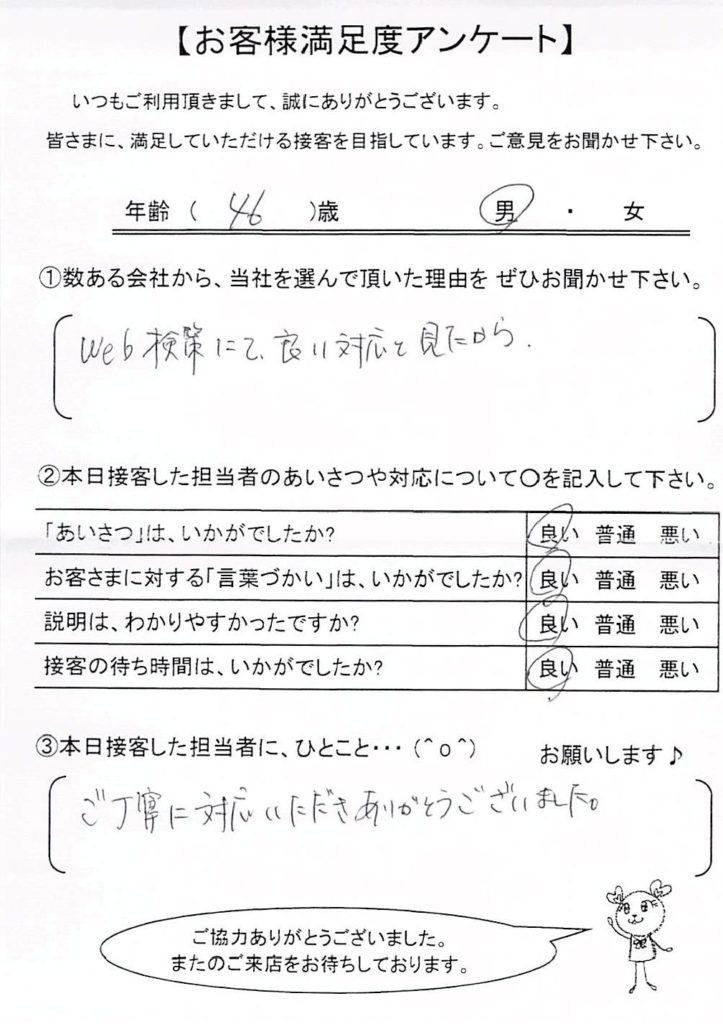 【お客様満足度アンケート】
いつもご利用頂きまして、誠にありがとうございます。
皆さまに、満足していただける接客を目指しています。ご意見をお聞かせ下さい。
年齢 ( 46 )歳 男 ・ 女
①数ある会社から、当社を選んで頂いた理由を ぜひお聞かせ下さい。
Web検策にて、良い対応と見たから.
②本日接客した担当者のあいさつや対応について〇を記入して下さい。
「あいさつ」は、いかがでしたか? 良い 普通 悪い
お客さまに対する「言葉づかい」は、いかがでしたか? 良い 普通 悪い
説明は、わかりやすかったですか? 良い 普通 悪い
接客の待ち時間は、いかがでしたか? 良い 普通 悪い
③本日接客した担当者に、ひとこと・・・(^o^) お願いします♪
ご丁寧に対応いただきありがとうございました。
ご協力ありがとうございました。
またのご来店をお待ちしております。